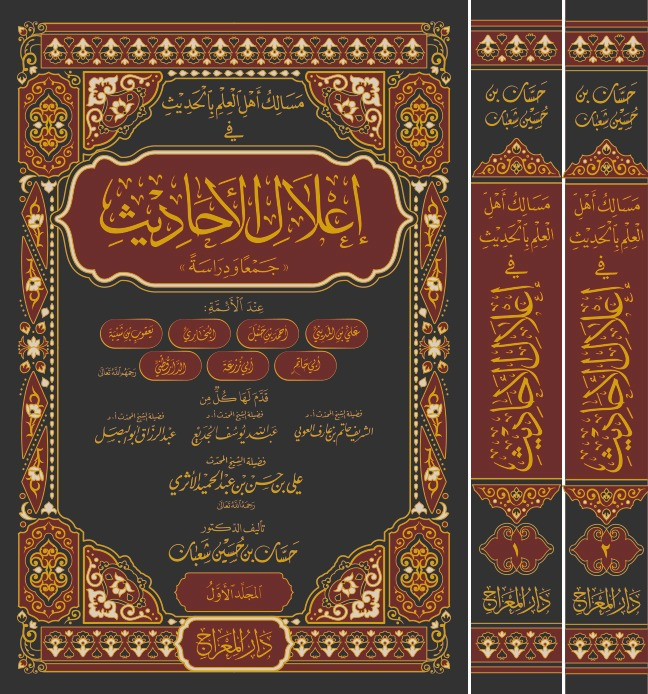 مَسَالِكُ أَهْلِ العِلْمِ بِالْحَدِيْثِ
فِي
إِعْلَالِ الأَحَادِيْثِ
«جَمْعًا وَدِرَاسَةً»
عِنْدَ الْأَئِمَّةِ:
علي بن المديني
أحمد بن حنبل
البخاري
يعقوب بن شيبة
أبي حاتم
أبي زرعة
الدارقطني
رحمهم الله تعالى
قَدَّمَ لَهَا كُلٌّ مِن
فضيلة الشيخ المحدث أ.د
الشريف حاتم بن عارف العوني
فضيلة الشيخ المحدث أ.د
عبد الله بن يوسف الجديع
فضيلة الشيخ المحدث أ.د
عبد الرزاق أبو البصل
فضيلة الشيخ المحدث
علي بن حسن بن عبد الحميد الأثري
رحمه الله تعالى
تأليف الدكتور
حسان بن حسين شعبان
المجلد الأول
دار المعراج
حسان بن
حسين شعبان
مَسَالِكُ أَهْلِ
العِلْمِ بِالْحَدِيْثِ
فِي
إِعْلَالِ الأَحَادِيْثِ
١
دار المعراج
حسان بن
حسين شعبان
مَسَالِكُ أَهْلِ
العِلْمِ بِالْحَدِيْثِ
فِي
إِعْلَالِ الأَحَادِيْثِ
٢
دار المعراج